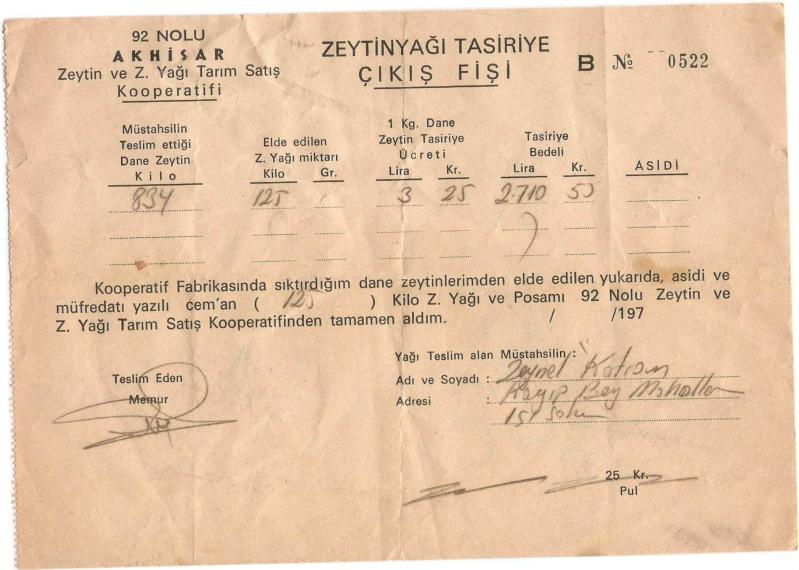 92 NOLU
AKHİSAR
Zeytin ve Z. Yağı Tarım Satış
Kooperatifi
ZEYTİNYAĞI TASİRİYE
ÇIKIŞ FİŞİ
B № 0522
Müstahsilin
Teslim ettiği
Dane Zeytin
Kilo
Elde edilen
Z. Yağı miktarı
Kilo Gr.
1 Kg. Dane
Zeytin Tasiriye
Ücreti
Lira Kr.
Tasiriye
Bedeli
Lira Kr.
ASİDİ
834 125 3 25 2.710 50
Kooperatif Fabrikasında sıktırdığım dane zeytinlerimden elde edilen yukarıda, asidi ve
müfredatı yazılı cem'an ( 125 ) Kilo Z. Yağı ve Posamı 92 Nolu Zeytin ve
Z. Yağı Tarım Satış Kooperatifinden tamamen aldım. / /197
Teslim Eden
Memur
Yağı Teslim alan Müstahsilin :
Adı ve Soyadı : Zeynel
Adresi : Bey
25 Kr.
Pul